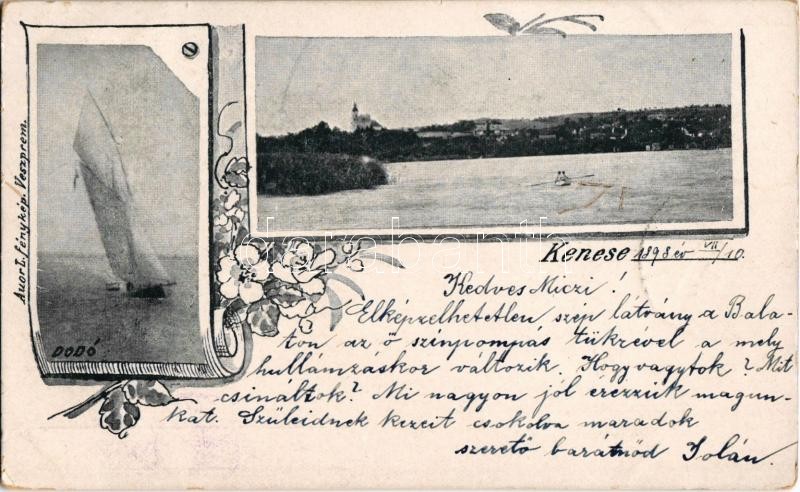 Auer I. fénykép. Veszprem.
DODÓ
Kenese 1898 év VII/10.
Kedves Miczi!
Elképzelhetetlen szép látvány a Bala-
ton az ő szinpompás tükrével a mely
hullámzáskor változik. Hogy vagytok? Mit
csináltok? Mi nagyon jól érezzük magun-
kat. Szüleidnek kezeit csokolva maradok
szerető barátnőd Jolán.
darabanth.com